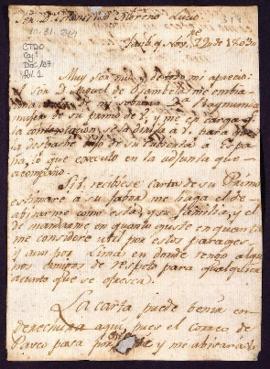 Sor. Dn. Francisco Moreno
Jauja y Nove. 22 de 1803
CTDO
Caj.
Doc. 187
Fol. 1
Muy Sor mio y de todo mi aprecio.
Don Miguel de me embia
mi sobrina Da. Raymunda
muger de su primo de V. y me encarga q
la contestacion se la dirija a V. para que
la despache de su a Espa-
ña, lo que executo en la adjunta que
acompaño.
Si V. recibiese carta de su Primo
estimaré a su fabor me haga el de
abisarme como está, y su familia, y el
de mandarme en quanto guste en que
me considere util por estos parages,
y aun por Lima en donde tengo algu-
nos amigos de respeto para qualquiera
asunto que se ofresca.
La carta puede benir en
derechura aqui, pues el correo de
Pasco pasa por y me abisará